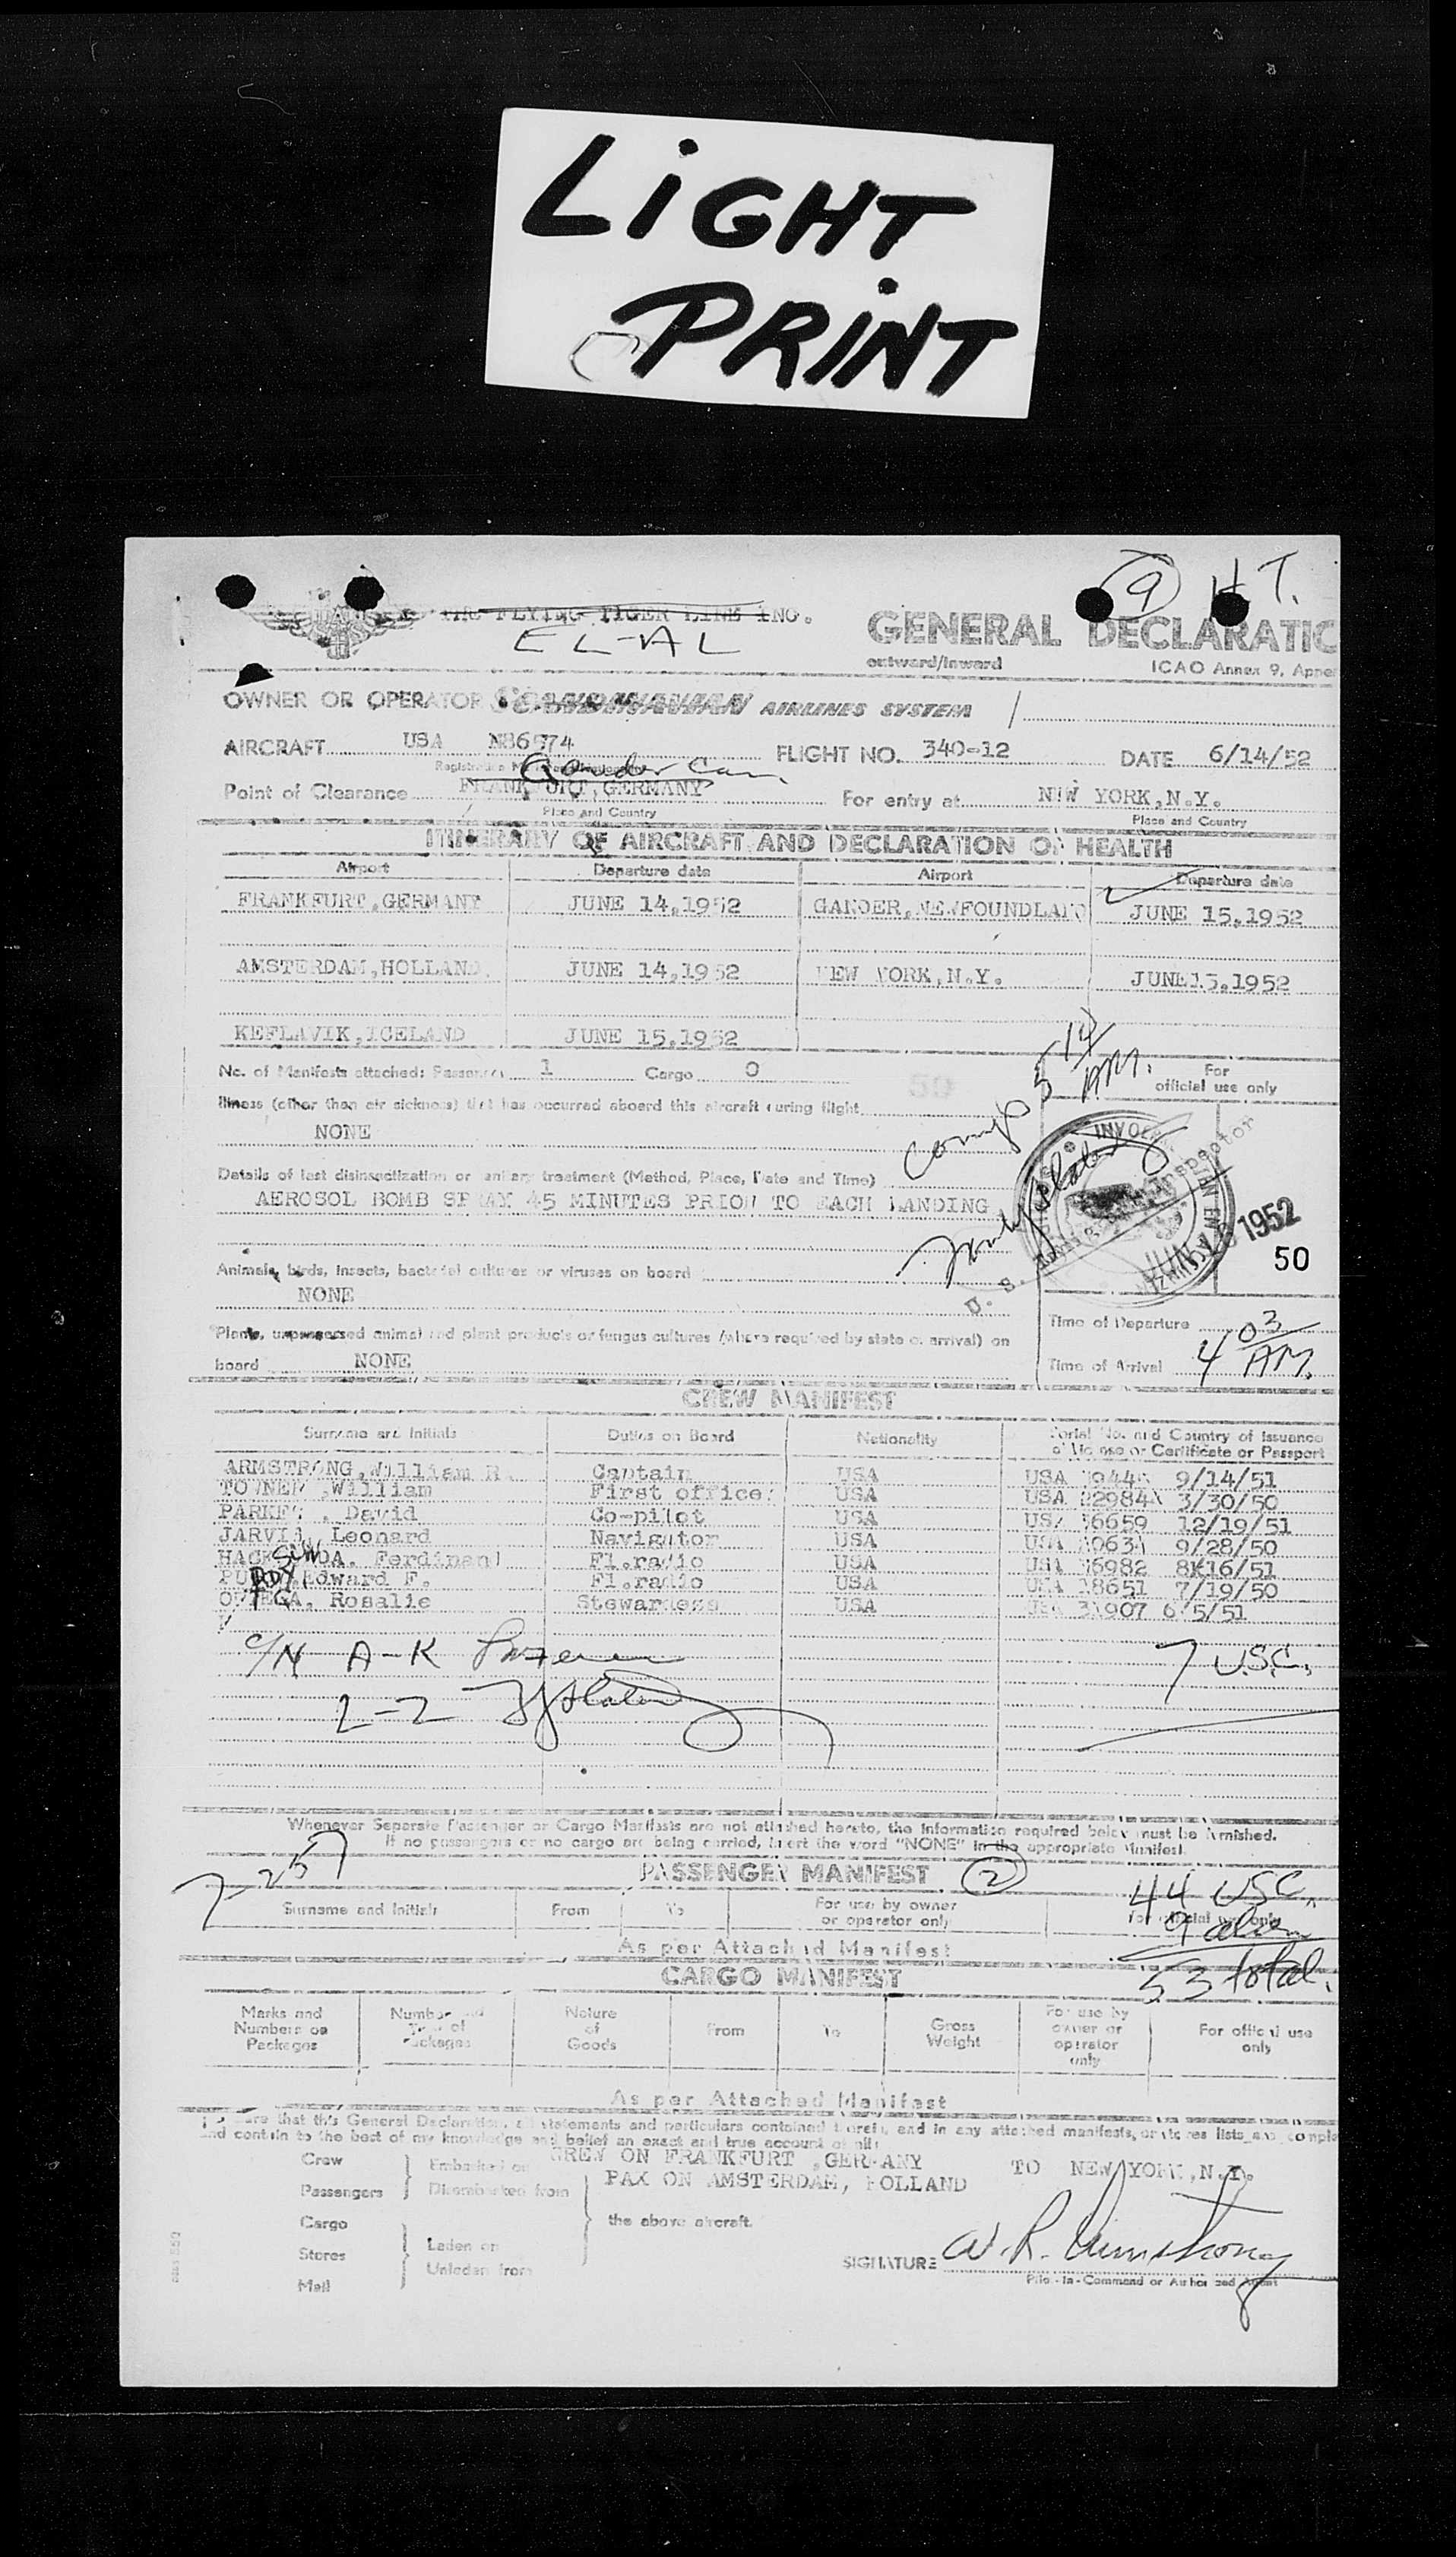 LiGHT
PRiNT
9 H.T.
THE FLYING TIGER LINE INC.
EL-AL
GENERAL DECLARATIC
outward/inward
ICAO Annex 9, Appe
OWNER OR OPERATOR AIRLINES SYSTEM
AIRCRAFT USA FLIGHT NO. 340-12 DATE 6/14/52
Gander Can.
Point of Clearance FRANKFURT, GERMANY For entry at NEW YORK, N.Y.
Place and Country Place and Country
ITINERARY OF AIRCRAFT AND DECLARATION OF HEALTH
Airport Departure date Airport Departure date
FRANKFURT, GERMANY JUNE 14, 1952 GANDER, NEWFOUNDLAND JUNE 15, 1952
AMSTERDAM, HOLLAND. JUNE 14, 1952 NEW YORK, N.Y. JUNE 15, 1952
KEFLAVIK, ICELAND JUNE 15, 1952
No. of Manifests attached: Passenger 1 Cargo 0
5 14 AM.
For
official use only
Illness (other than air sickness) that has occurred aboard this aircraft during flight
NONE
Details of last disinsectization or sanitary treatment (Method, Place, Date and Time)
AEROSOL BOMB SPRAY 45 MINUTES PRIOR TO EACH LANDING
U. S. Inspector
1952
50
Animals, birds, insects, bacterial cultures or viruses on board
NONE
Plants, unprocessed animal and plant products or fungus cultures (where required by state of arrival) on
board NONE
Time of Departure
Time of Arrival 4 03 AM.
CREW MANIFEST
Surname and Initials Duties on Board Nationality Serial No. and Country of Issuance
of License or Certificate or Passport
ARMSTRONG, William R. Captain USA USA 9/14/51
TOWNER, William First officer USA USA 22984 3/30/50
PARKER, David Co-pilot USA USA 6659 12/19/51
JARVIS, Leonard Navigator USA USA 9/28/50
Ferdinand Fl.radio USA USA 6982 8/16/51
PURDY, Edward F. Fl.radio USA USA 8651 7/19/50
ORTEGA, Rosalie Stewardess USA USA 907 6/5/51
C/N A-K
7 USC.
L-Z
Whenever Separate Passenger or Cargo Manifests are not attached hereto, the information required below must be furnished.
If no passengers or no cargo are being carried, insert the word "NONE" in the appropriate Manifest.
7-257
PASSENGER MANIFEST 2
44 USC.
Surname and Initials From To For use by owner
or operator only For official use only
9 alien
As per Attached Manifest
53 total.
CARGO MANIFEST
Marks and
Numbers on
Packages Number and
Type of
Packages Nature
of
Goods From To Gross
Weight For use by
owner or
operator
only For official use
only
As per Attached Manifest
that this General Declaration, all statements and particulars contained herein, and in any attached manifests, or stores lists, are comple
and contain to the best of my knowledge and belief an exact and true account of all:
Crew Embarked on CREW ON FRANKFURT, GERMANY TO NEW YORK, N.Y.
Passengers Disembarked from PAX ON AMSTERDAM, HOLLAND
Cargo the above aircraft.
Stores Laden on
Mail Unladen from
SIGNATURE W. R. Armstrong
Pilot-in-Command or Authorized Agent